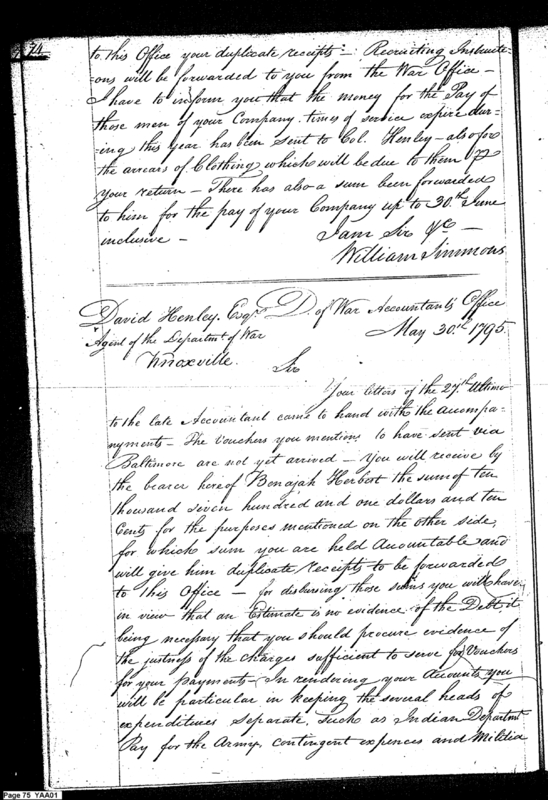 74
to this Office your duplicate receipts – Recruiting Instructi-
ons will be forwarded to you from the War Office –
I have to inform you that the money for the Pay of
those men of your Company times of service expire dur-
ing this year has been sent to Col. Henley – also for
the arrears of Clothing which will be due to them
your return – There has also a sum been forwarded
to him for the pay of your Company up to 30th June
inclusive –
I am Sir &c –
William Simmons
David Henley, Esqr. D. of War Accountants Office
Agent of the Department of War May 30th 1795.
Knoxville.
Sir
Your letters of the 27th Ultimo
to the late Accountant came to hand with the accompa-
nyments – The Vouchers you mention to have sent via
Baltimore are not yet arrived – You will receive by
the bearer hereof Bonajah Herbert the sum of ten
thousand seven hundred and one dollars and ten
Cents for the purposes mentioned on the other side,
for which sum you are held Accountable and
will give him duplicate receipts to be forwarded
to this Office – for disbursing those sums you will have
in view that an Estimate is no evidence of the Debt it
being necessary that you should procure evidence of
the justness of the charges sufficient to serve for Vouchers
for your payments – In rendering your Accounts you
will be particular in keeping the several heads of
expenditures Separate, Such as Indian Departmt
Pay for the Army, contingent expences and Militia
Page 75 YAA01